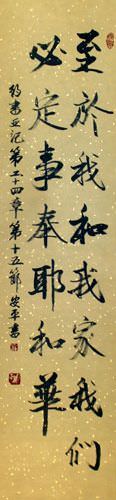 至於我和我家我們
必定事奉耶和華
約書亚记第二十四章第十五節 安平書